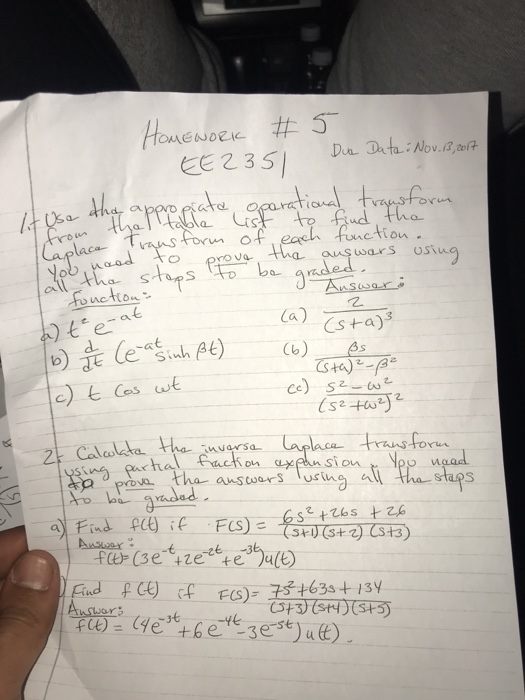 HOMEWORK # 5
EE2351
Due Date: Nov. 13, 2017
1.- Use the appropiate operational transform
from the table list to find the
Laplace Transform of each function.
You need to prove the answers using
all the steps to be graded.
function:
Answer:
a) t² e^-at
(a) 2/(s+a)³
b) d/dt (e^-at sinh βt)
(b) βs/((s+a)²-β²)
c) t cos wt
(c) (s²-ω²)/(s²+ω²)²
2.- Calculate the inverse Laplace transform
using partial fraction expansion. You need
to prove the answers using all the steps
to be graded.
a) Find f(t) if F(s) = (6s²+26s+26)/((s+1)(s+2)(s+3))
Answer:
f(t)= (3e^-t+2e^-2t+e^-3t)u(t)
) Find f(t) if F(s) = (7s²+63s+134)/((s+3)(s+4)(s+5))
Answer:
f(t) = (4e^-3t+6e^-4t-3e^-5t)u(t).